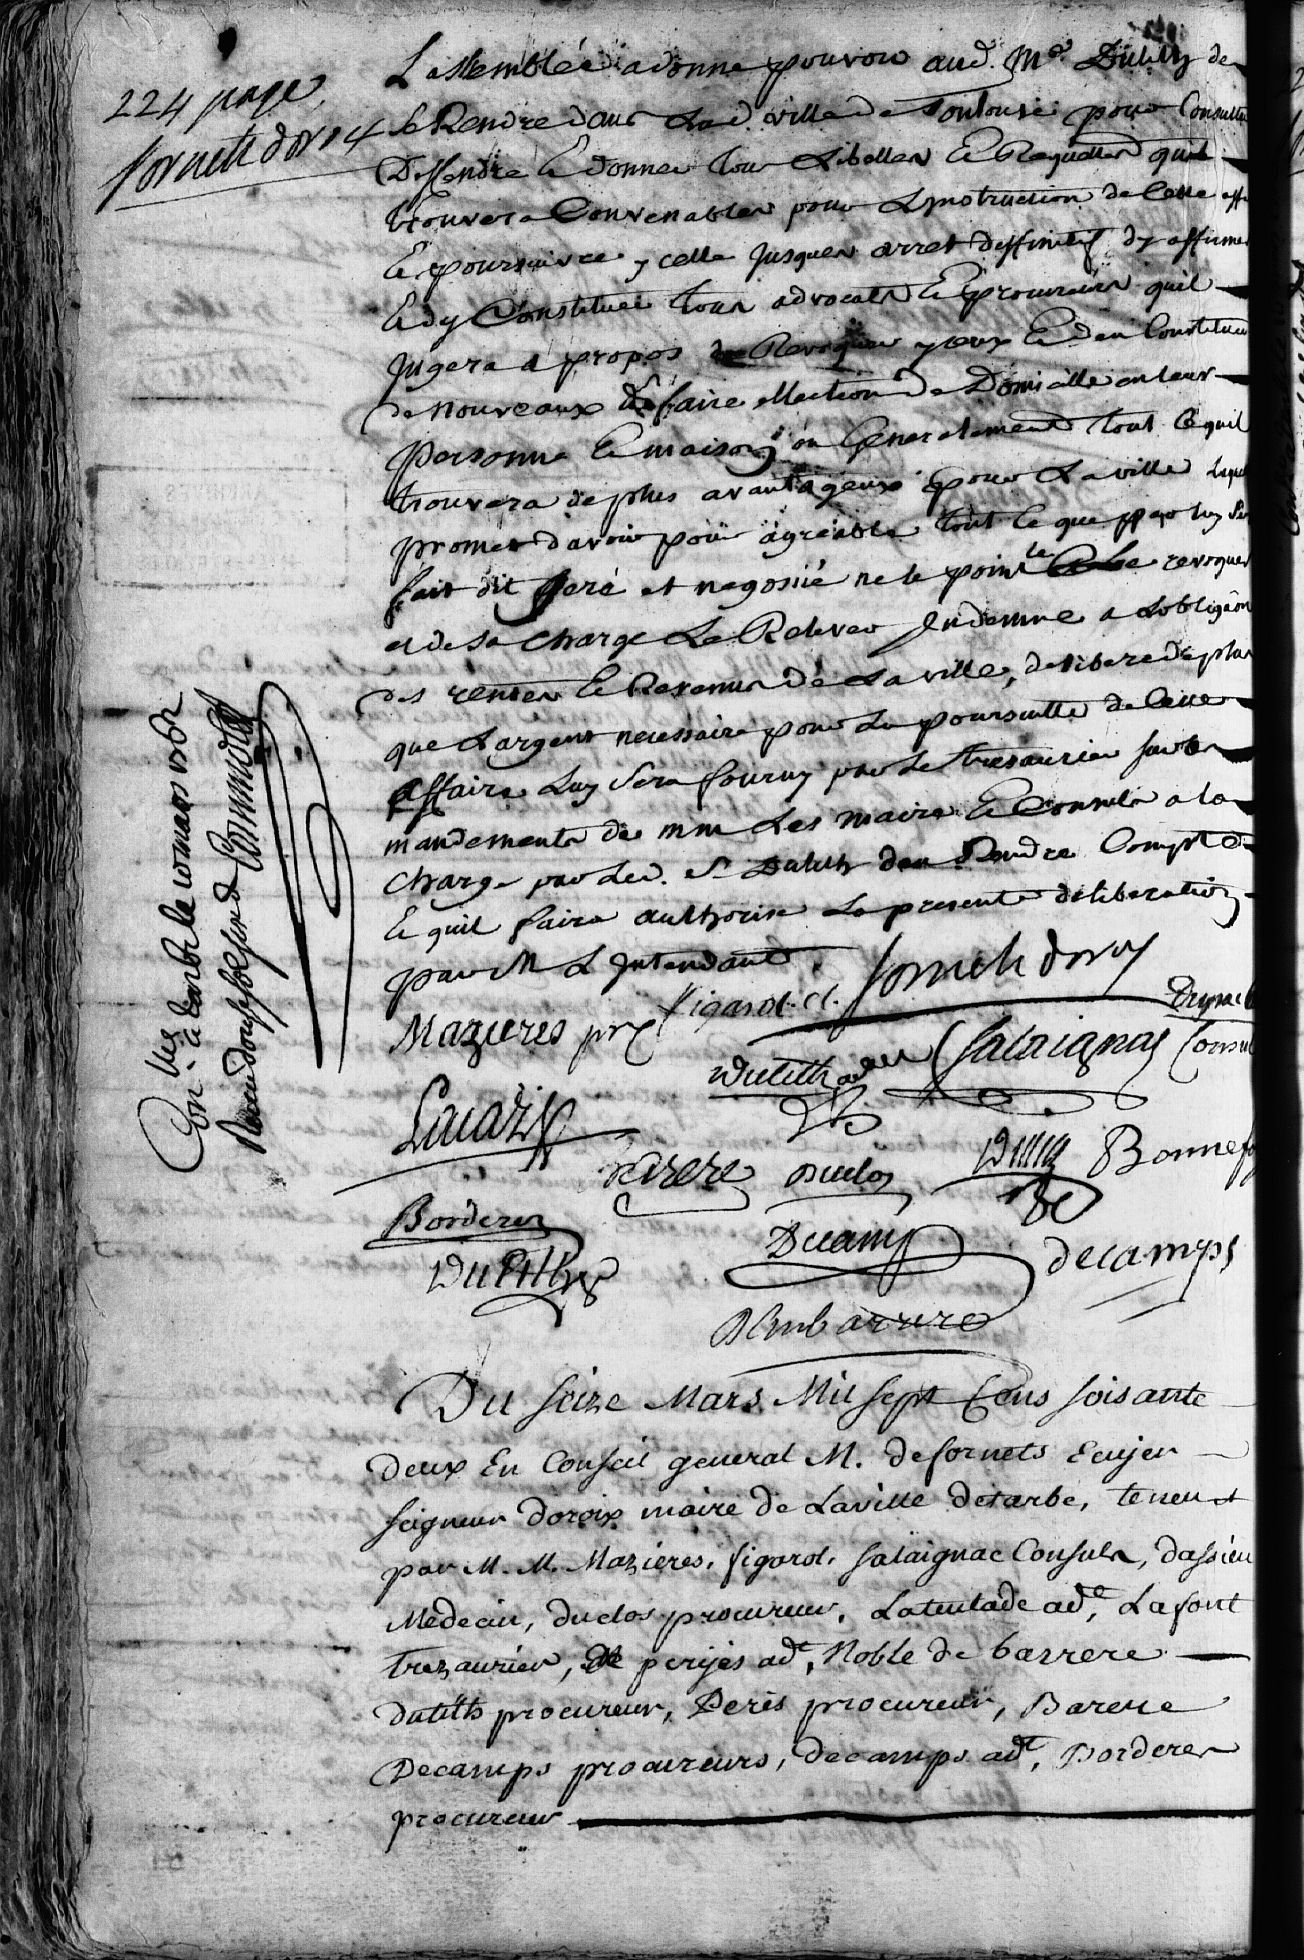 224 page
fornetz doroix
Lassemblée a donné pouvoir aud. Me. Dutilh de
se Rendre dans Lad. ville de Toulouse pour Consulter
Deffendre & donner tous Libelles & Requettes quil
trouvera Convenables pour Linstruction de Cette aff
& poursuivre ycelle Jusques arret deffinitif dy affirmer
& dy Constituer tous advocats & procureurs quil
Jugera a propos Revoquer yceux & den Constituer
de nouveaux de faire ellection de Domicille en leur
personne & maison ou Generalement tout Ce quil
trouvera de plus avantageux pour La ville Laquelle
promet davoir pour agreable tout Ce que par luy Sera
fait dit geré et negosiié ne le point le revoquer
et de sa charge Le Relever Indemne a Lobligaôn
des renten & Revenus de La ville, delibere de plus
que Largent necessaire pour La poursuitte de Cette
affaire Luy Sera fourny par Le tresaurier sur les
mandements de mm Les maire & Consuls a la
charge par Led. Sr Dutilh den Rendre Compte
& quil faira authorise La presente deliberation
par M L Intendant
Con. vue a tarbe le 10 mars 1762
fornetz doroix
figarol. cl.
Mazieres pr
Dutilh
Salaignac Consul
Lacaze
Barere Duclos
Bonnefo
Borderes
Decamp
decamps
Dutilh
Dembarrere
Du seize Mars Mil sept Cens soisante
deux En Conseil general M. de fornets Ecuyer
seigneur doroix maire de Laville detarbe, teneu et
par M. M. Mazieres, figarol, salaignac Consuls, dassieu
Medecin, duclos procureur, Latulade adt, Lafont
trezaurier, perijes adt, Noble de barrere
dutilh procureur, Peres procureur, Barere
Decamps procureurs, decamps adt, Borderes
procureur